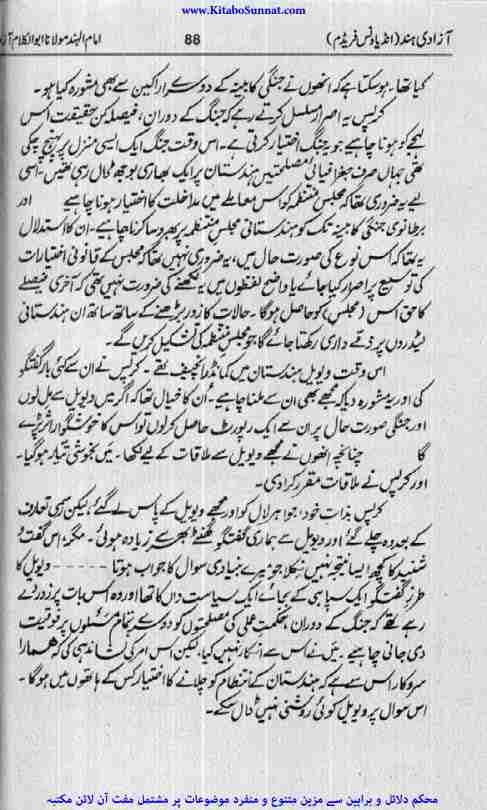 www.KitaboSunnat.com
آزادی ہند (انڈیا ونس فریڈم)
88
امام الہند مولانا ابوالکلام آزا
کیا تھا۔ ہو سکتا ہے کہ انھوں نے جنگی کابینہ کے دوسرے اراکین سے بھی مشورہ کیا ہو۔
کرپس یہ اصرار مسلسل کرتے رہے کہ جنگ کے دوران، فیصلہ کن حقیقت اس
لہجے کو ہونا چاہیے جو یہ جنگ اختیار کرتی ہے۔ اس وقت جنگ ایک ایسی منزل پر پہنچ چکی
تھی جہاں صرف جغرافیائی مصلحتیں ہندستان پر ایک بھاری بوجھ ڈال رہی تھیں۔ اسی
لیے یہ ضروری تھا کہ مجلس منتظمہ کو اس معاملے میں مداخلت کا اختیار ہونا چاہیے اور
برطانوی جنگی کابینہ تک کو ہندستانی مجلس منتظمہ پر بھروسا کرنا چاہیے۔ ان کا استدلال
یہ تھا کہ اس نوع کی صورت حال میں، یہ ضروری نہیں تھا کہ مجلس کے قانونی اختیارات
کی توسیع پر اصرار کیا جائے یا واضح لفظوں میں یہ لکھنے کی ضرورت نہیں تھی کہ آخری فیصلے
کا حق اس (مجلس) کو حاصل ہوگا۔ حالات کا زور بڑھنے کے ساتھ ساتھ ان ہندستانی
لیڈروں پر ذمے داری رکھتا جائے گا جو مجلس منتظمہ کی تشکیل کریں گے۔
اس وقت ویول ہندستان میں کمانڈر انچیف تھے۔ کرپس نے ان سے کئی بار گفتگو
کی اور یہ مشورہ دیا کہ مجھے بھی ان سے ملنا چاہیے۔ اُن کا خیال تھا کہ اگر میں ویول سے مل لوں
اور جنگی صورت حال پر ان سے ایک رپورٹ حاصل کر لوں تو اس کا خوشگوار اثر پڑے
گا چنانچہ انھوں نے مجھے ویول سے ملاقات کے لیے لکھا۔ میں بخوشی تیار ہو گیا۔
اور کرپس نے ملاقات مقرر کرا دی۔
کرپس بذات خود، جواہر لال کو اور مجھے ویول کے پاس لے گئے، لیکن رسمی تعارف
کے بعد وہ چلے گئے اور ویول سے ہماری گفتگو گھنٹے بھر سے زیادہ ہوئی۔ مگر اس گفت و
شنید کا کچھ ایسا نتیجہ نہیں نکلا جو میرے بنیادی سوال کا جواب ہوتا ------ ویول کا
طرز گفتگو ایک سپاہی کے بجائے ایک سیاست داں کا تھا اور وہ اس بات پر زور دے
رہے تھے کہ جنگ کے دوران حکمت عملی کی مصلحتوں کو دوسرے تمام مسئلوں پر فوقیت
دی جانی چاہیے۔ میں نے اس سے انکار نہیں کیا، لیکن اس امر کی نشاندہی کی کہ ہمارا
سروکار اس سے ہے کہ ہندستان کے انتظام کو چلانے کا اختیار کس کے ہاتھوں میں ہوگا۔
اس سوال پر ویول کوئی روشنی نہیں ڈال سکے۔
محکم دلائل و براہین سے مزین متنوع و منفرد موضوعات پر مشتمل مفت آن لائن مکتبہ